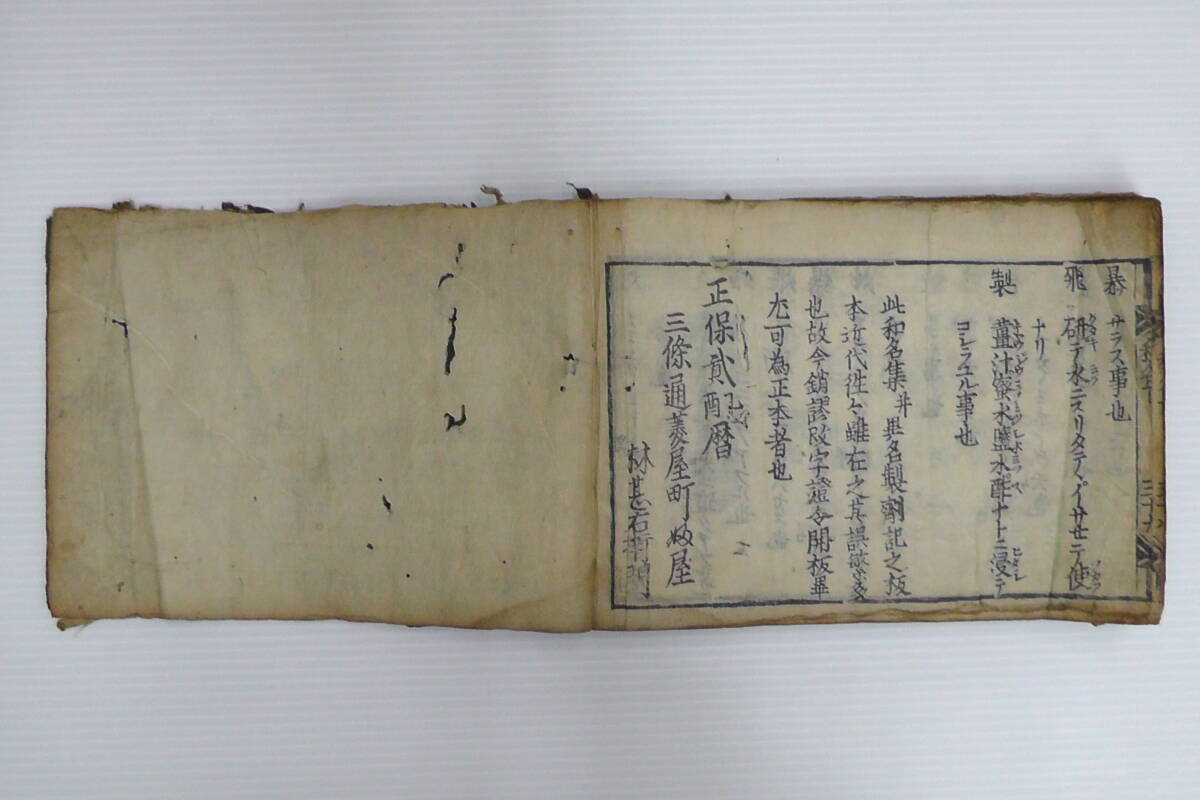 暴 サラス事也
飛 研テ水ニスリタテ イサセニテ使
ナリ
製 薑汁蜜水鹽水酢ナトニ浸テ
コシラユル事也
此和名集并異名製劑記之板
本近代徃々雖在之其誤
也故今銷謬改字證令開板畢
尤可為正本者也
正保貳 暦
三條通菱屋町婦屋
林甚右衛門